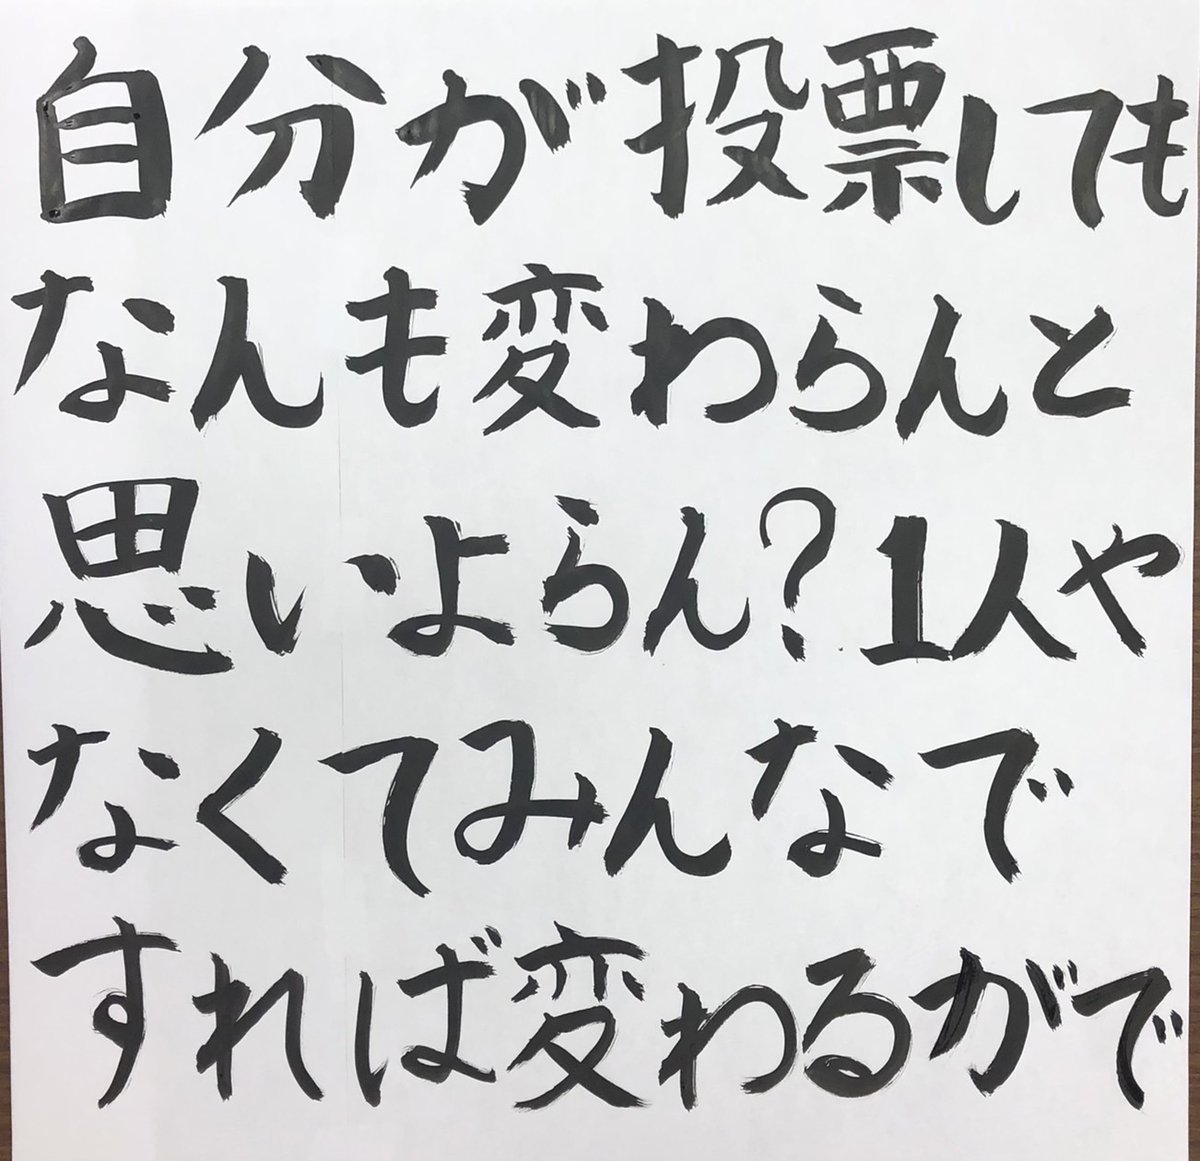 自分が投票しても
なんも変わらんと
思いよらん?1人や
なくてみんなで
すれば変わるがで